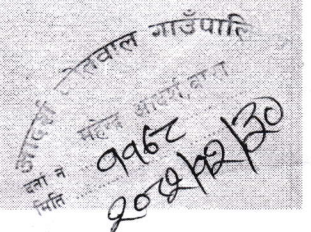 आदर्श कोतवाल गाउँपालि
महेन्द्र आदर्श, बारा
दर्ता नं ११६८
मिति २०८२/१२/३०